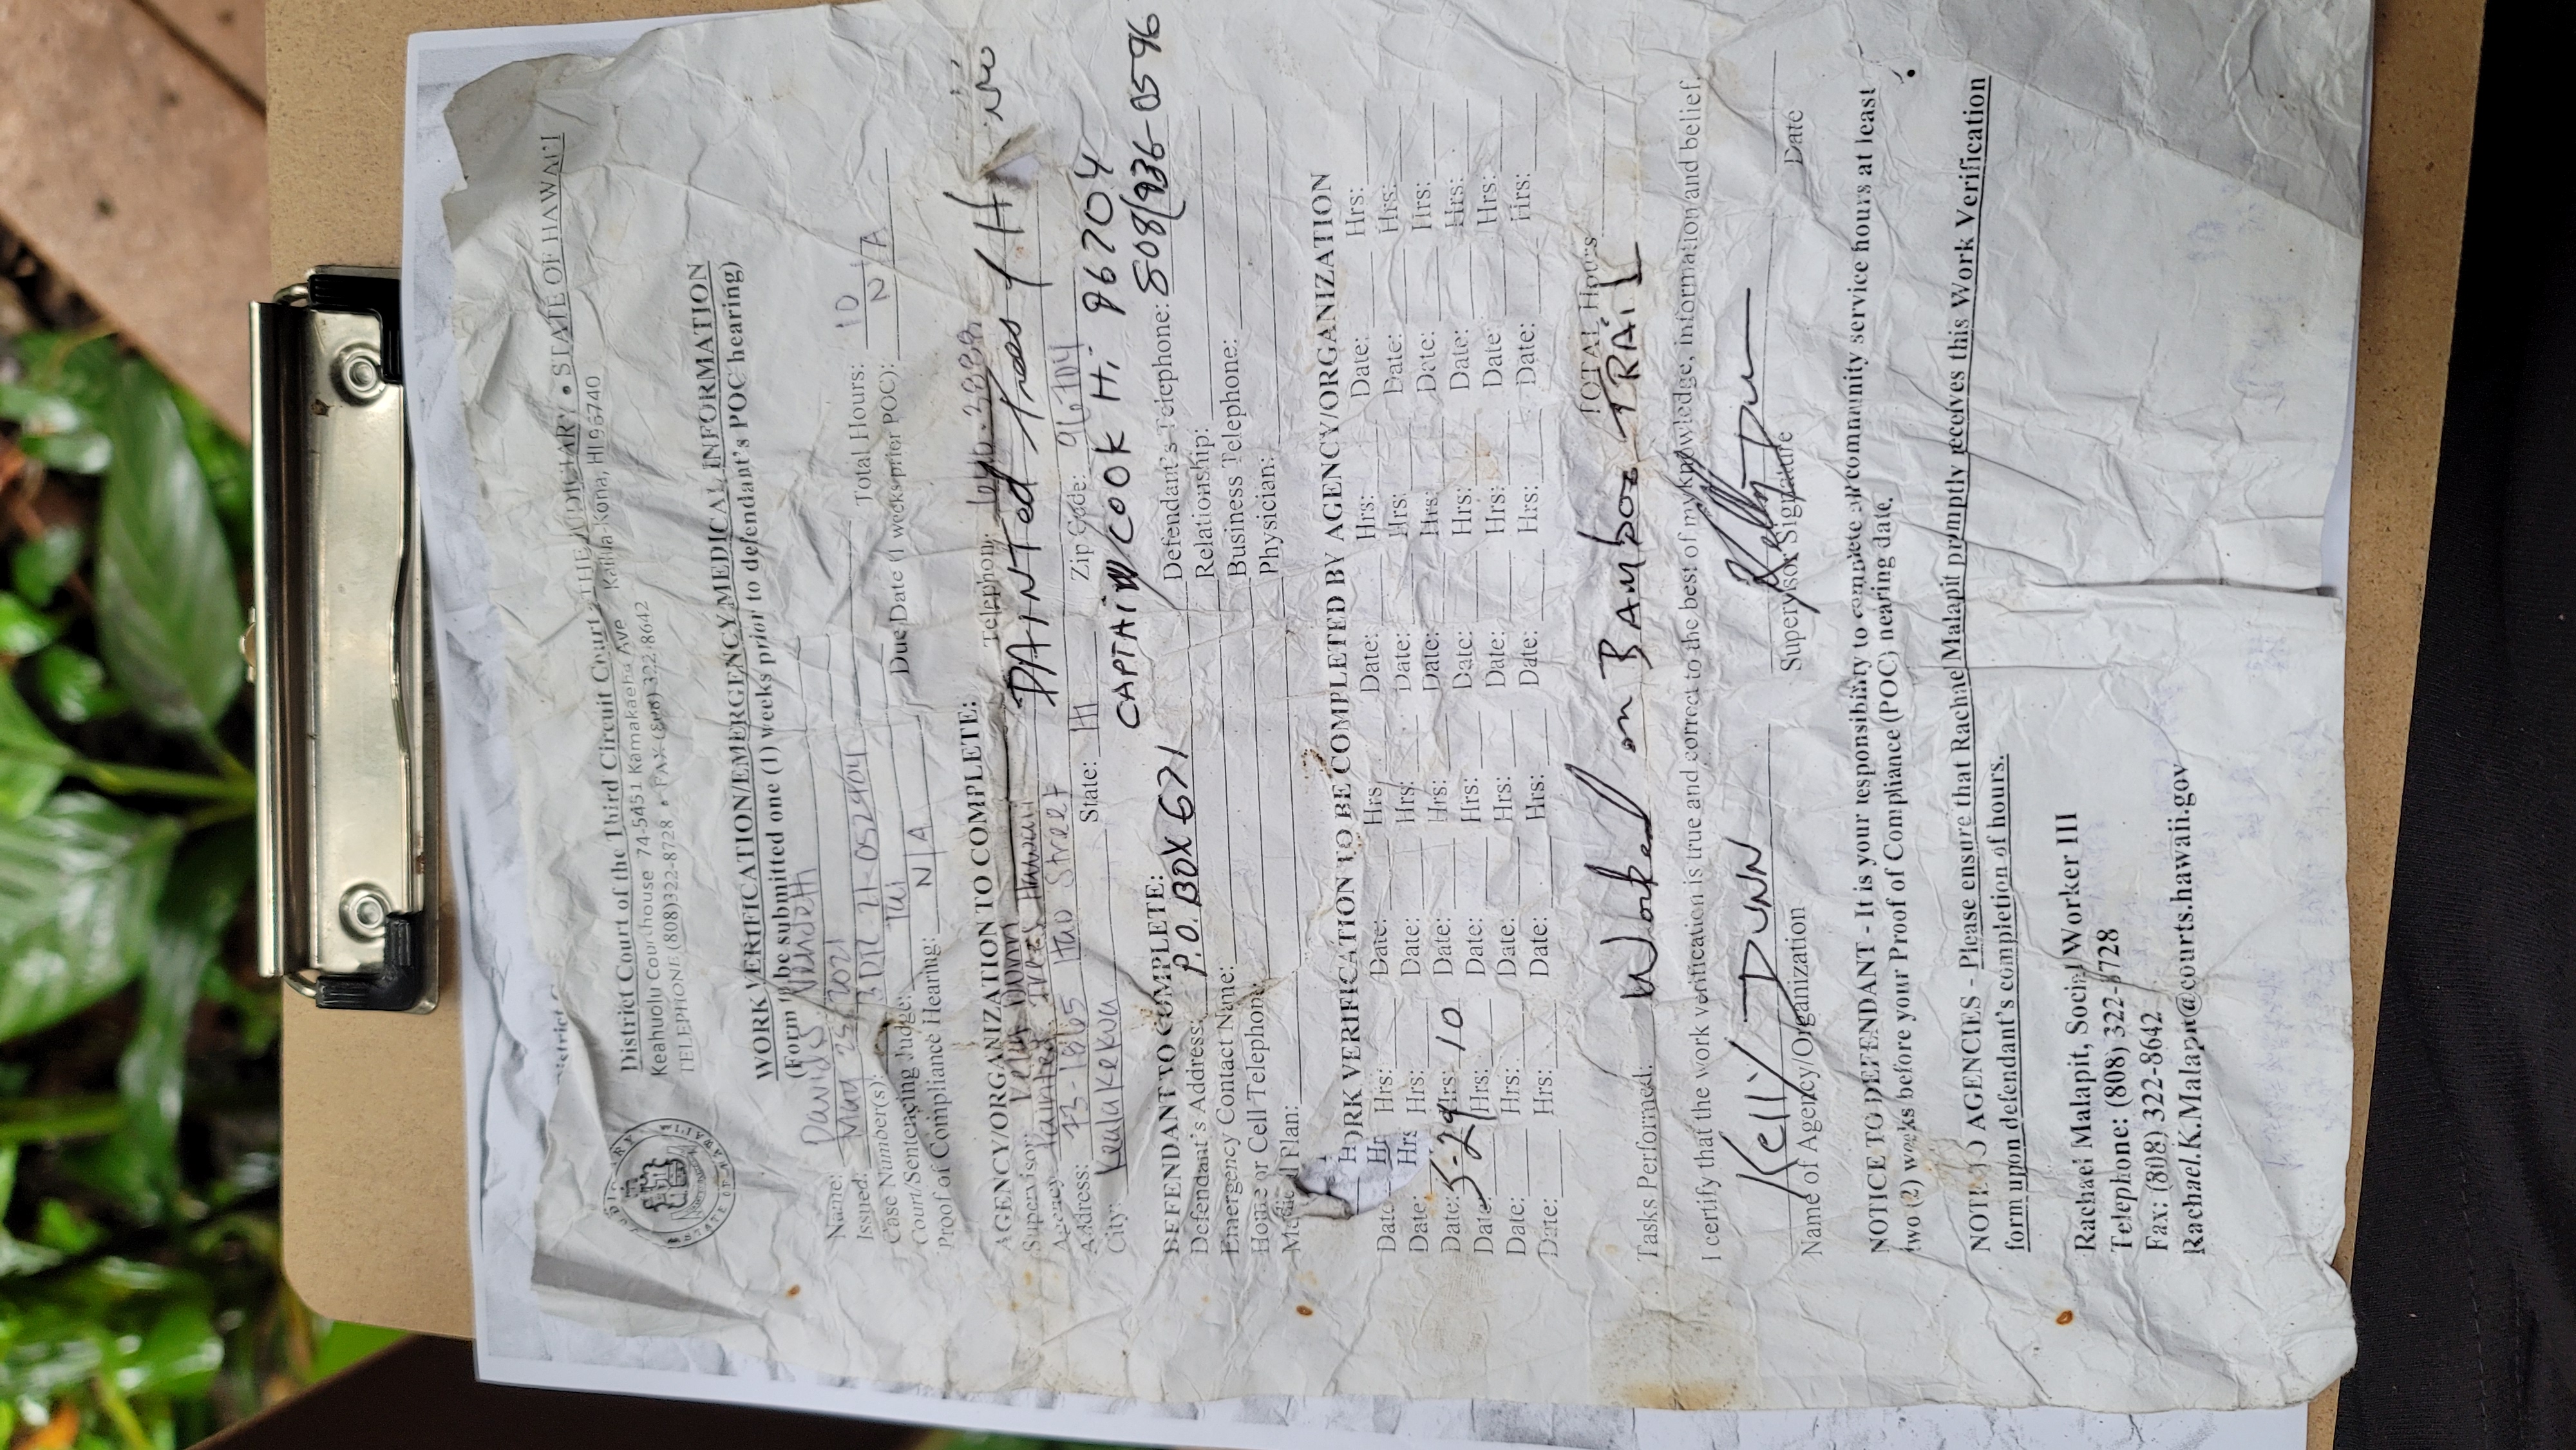 District Court of the Third Circuit Court • THE JUDICIARY • STATE OF HAWAI'I
Keahuolu Courthouse 74-5451 Kamakaeha Ave Kailua-Kona, HI 96740
TELEPHONE (808)322-8728 • FAX (808) 322-8642
WORK VERIFICATION/EMERGENCY/MEDICAL INFORMATION
(Form to be submitted one (1) weeks prior to defendant's POC hearing)
Name: David
Issued: 2021 Total Hours: 10
Case Number(s): Due Date (1 weeks prior POC): N/A
Court/Sentencing Judge:
Proof of Compliance Hearing: N/A
AGENCY/ORGANIZATION TO COMPLETE:
Supervisor: Kelly Dunn Telephone:
Agency: Painted Trees Hawaii PAINTed Trees of H
Address: Street
City: Kealakekua State: HI Zip Code: 96704
CAPTAIN COOK Hi. 96704
DEFENDANT TO COMPLETE:
Defendant's Address: P.O. BOX 671 Defendant's Telephone: 808/936-0596
Emergency Contact Name: Relationship:
Home or Cell Telephone: Business Telephone:
Medical Plan: Physician:
WORK VERIFICATION TO BE COMPLETED BY AGENCY/ORGANIZATION
Date: Hr Date: Hrs: Date: Hrs: Date: Hrs: Date: Hrs:
Date: Hrs: Date: Hrs: Date: Hrs: Date: Hrs:
Date: 5-29 Hrs: 10 Date: Hrs: Date: Hrs: Date: Hrs:
Date: Hrs: Date: Hrs: Date: Hrs: Date: Hrs:
Date: Hrs: Date: Hrs: Date: Hrs: Date: Hrs:
Date: Hrs: Date: Hrs: Date: Hrs: Date: Hrs:
TOTAL Hours
Tasks Performed: Worked on BAmboo TRAIL
I certify that the work verification is true and correct to the best of my knowledge, information and belief.
Kelly DUNN Kelly Dunn
Name of Agency/Organization Supervisor Signature Date
NOTICE TO DEFENDANT - It is your responsibility to complete all community service hours at least
two (2) weeks before your Proof of Compliance (POC) hearing date.
NOTE TO AGENCIES - Please ensure that Rachael Malapit promptly receives this Work Verification
form upon defendant's completion of hours.
Rachael Malapit, Social Worker III
Telephone: (808) 322-8728
Fax: (808) 322-8642
Rachael.K.Malapit@courts.hawaii.gov